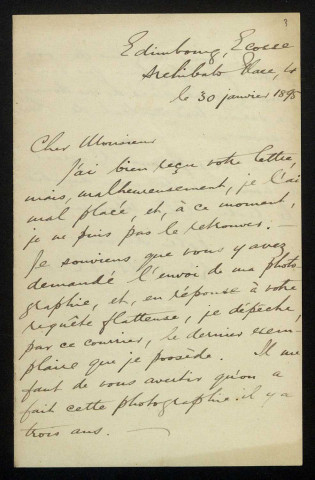 3
Edimbourg, Ecosse
Archibald Place, 4
le 30 janvier 1895
Cher Monsieur
J'ai bien reçu votre lettre,
mais, malheureusement, je l'ai
mal placé, et, à ce moment,
je ne puis pas le retrouver. —
Je souviens que vous y avez
demandé l'envoi de ma photo
graphie, et, en réponse à votre
requête flatteuse, je dépêche,
par ce courrier, le dernier exem-
plaire que je possède. Il me
faut de vous avertir qu'on a
fait cette photographie il y a
trois ans. —